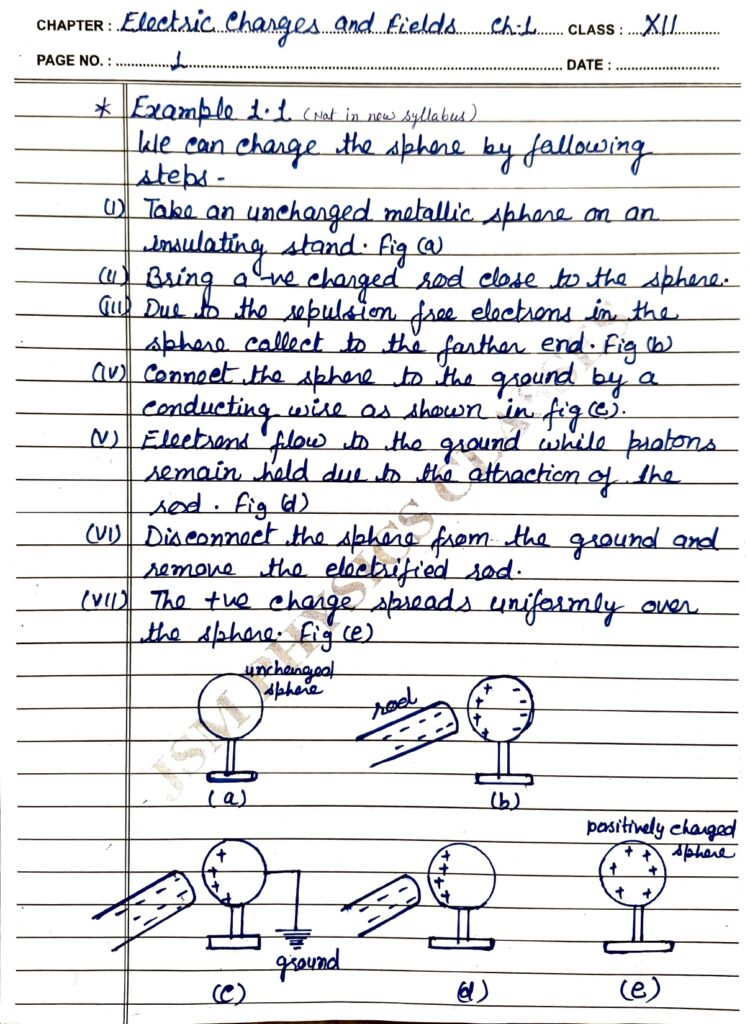 CHAPTER : Electric Charges and Fields Ch-1 CLASS : XII
PAGE NO. : 1 DATE :
* Example 1.1 (Not in new syllabus)
We can charge the sphere by fallowing
steps -
(I) Take an uncharged metallic sphere on an
insulating stand. Fig (a)
(II) Bring a -ve charged rod close to the sphere.
(III) Due to the repulsion free electrons in the
sphere collect to the farther end. Fig (b)
(IV) Connect the sphere to the ground by a
conducting wire as shown in fig (c).
(V) Electrons flow to the ground while protons
remain held due to the attraction of the
rod. Fig (d)
(VI) Disconnect the sphere from the ground and
remove the electrified rod.
(VII) The +ve charge spreads uniformly over
the sphere. Fig (e)
uncharged
sphere
rod
(a)
(b)
positively charged
sphere
ground
(c)
(d)
(e)
JSM PHYSICS CLASSES